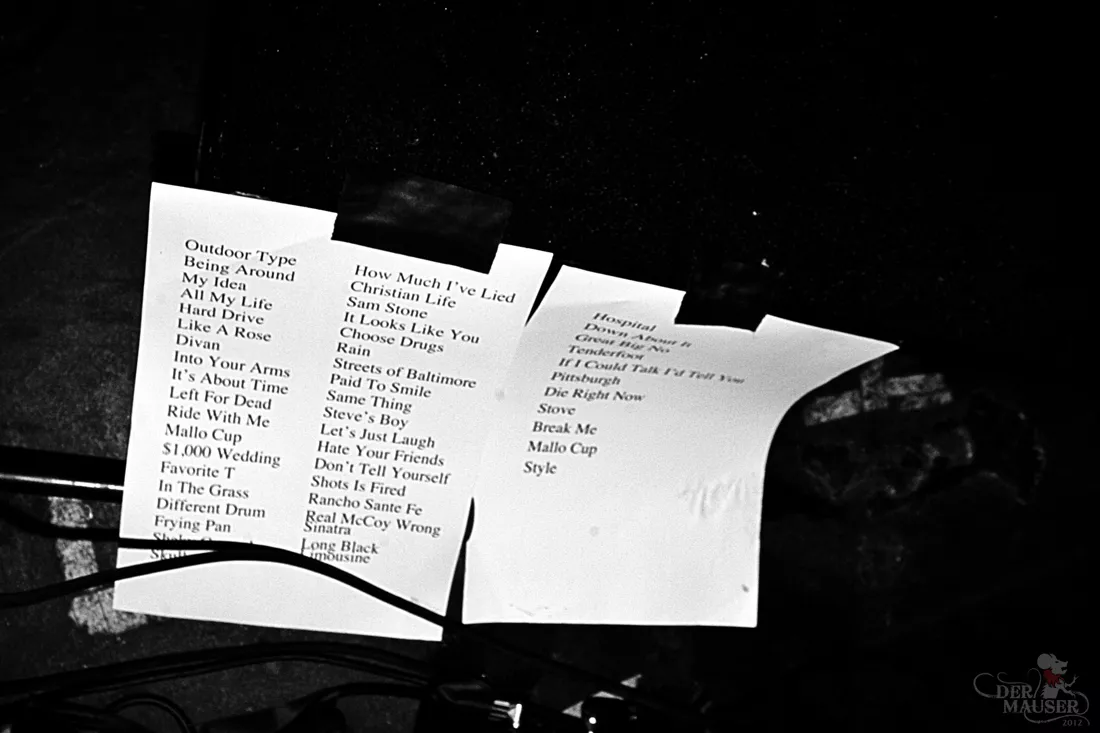 Outdoor Type
Being Around
My Idea
All My Life
Hard Drive
Like A Rose
Divan
Into Your Arms
It's About Time
Left For Dead
Ride With Me
Mallo Cup
$1,000 Wedding
Favorite T
In The Grass
Different Drum
Frying Pan
How Much I've Lied
Christian Life
Sam Stone
It Looks Like You
Choose Drugs
Rain
Streets of Baltimore
Paid To Smile
Same Thing
Steve's Boy
Let's Just Laugh
Hate Your Friends
Don't Tell Yourself
Shots Is Fired
Rancho Sante Fe
Real McCoy Wrong
Sinatra
Long Black
Limousine
Hospital
Down About It
Great Big No
Tenderfoot
If I Could Talk I'd Tell You
Pittsburgh
Die Right Now
Stove
Break Me
Mallo Cup
Style
DER
MAUSER
2012